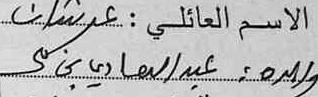 الاسم العائلي : عرشان
والده : عبد الهادي بن